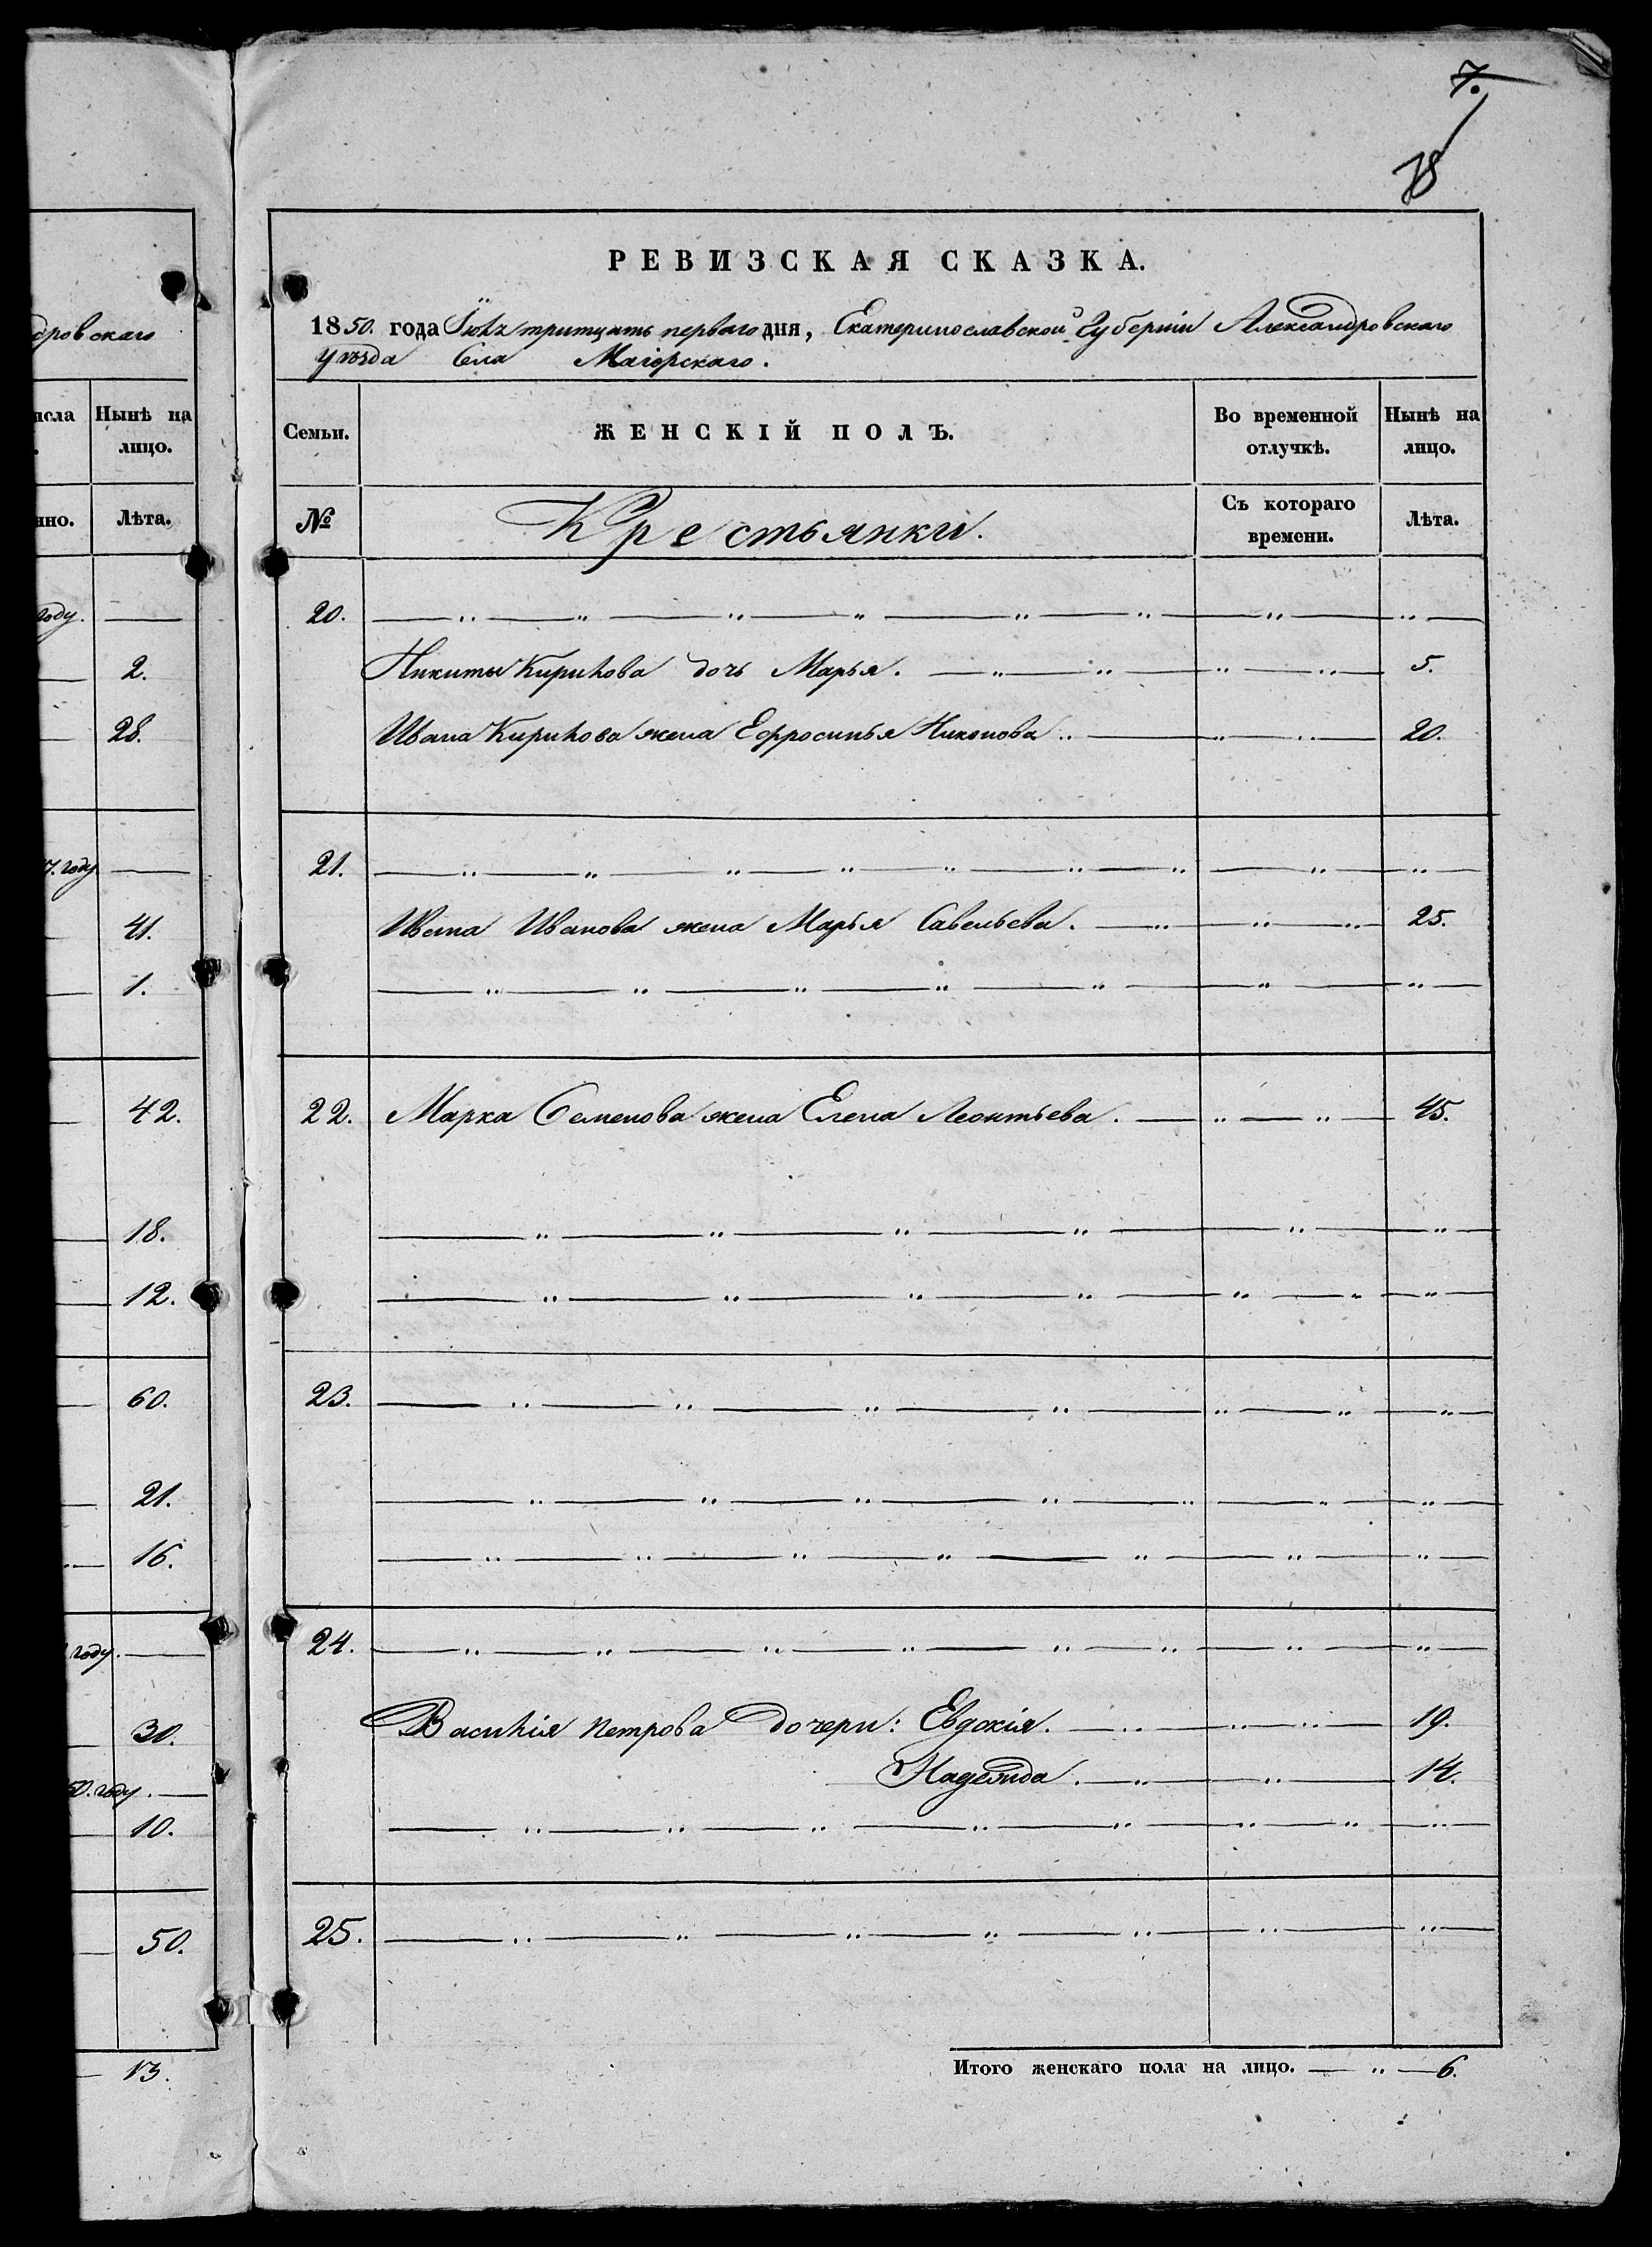 7.
78
РЕВИЗСКАЯ СКАЗКА.
1850. года Іюля тритцать перваго дня, Екатеринославской Губерніи Александровскаго
уѣзда Села Маіорскаго.
Семьи. ЖЕНСКІЙ ПОЛЪ. Во временной отлучкѣ. Нынѣ на лицо.
№ Крестьянки. Съ котораго времени. Лѣта.
20.
Никиты Кирилова дочь Марья. 5.
Ивана Кирилова жена Ефросинья Никонова 20.
21.
Ивана Иванова жена Марья Савельева. 25.
22. Марка Семенова жена Елена Леонтьева. 45.
23.
24.
Василія Петрова дочери: Евдокія. 19.
Надежда. 14.
25.
Итого женскаго пола на лицо. 6.
дровскаго
Нынѣ на лицо.
Лѣта.
году.
2.
28.
7. году
41.
1.
42.
18.
12.
60.
21.
16.
году.
30.
50. году.
10.
50.
13.